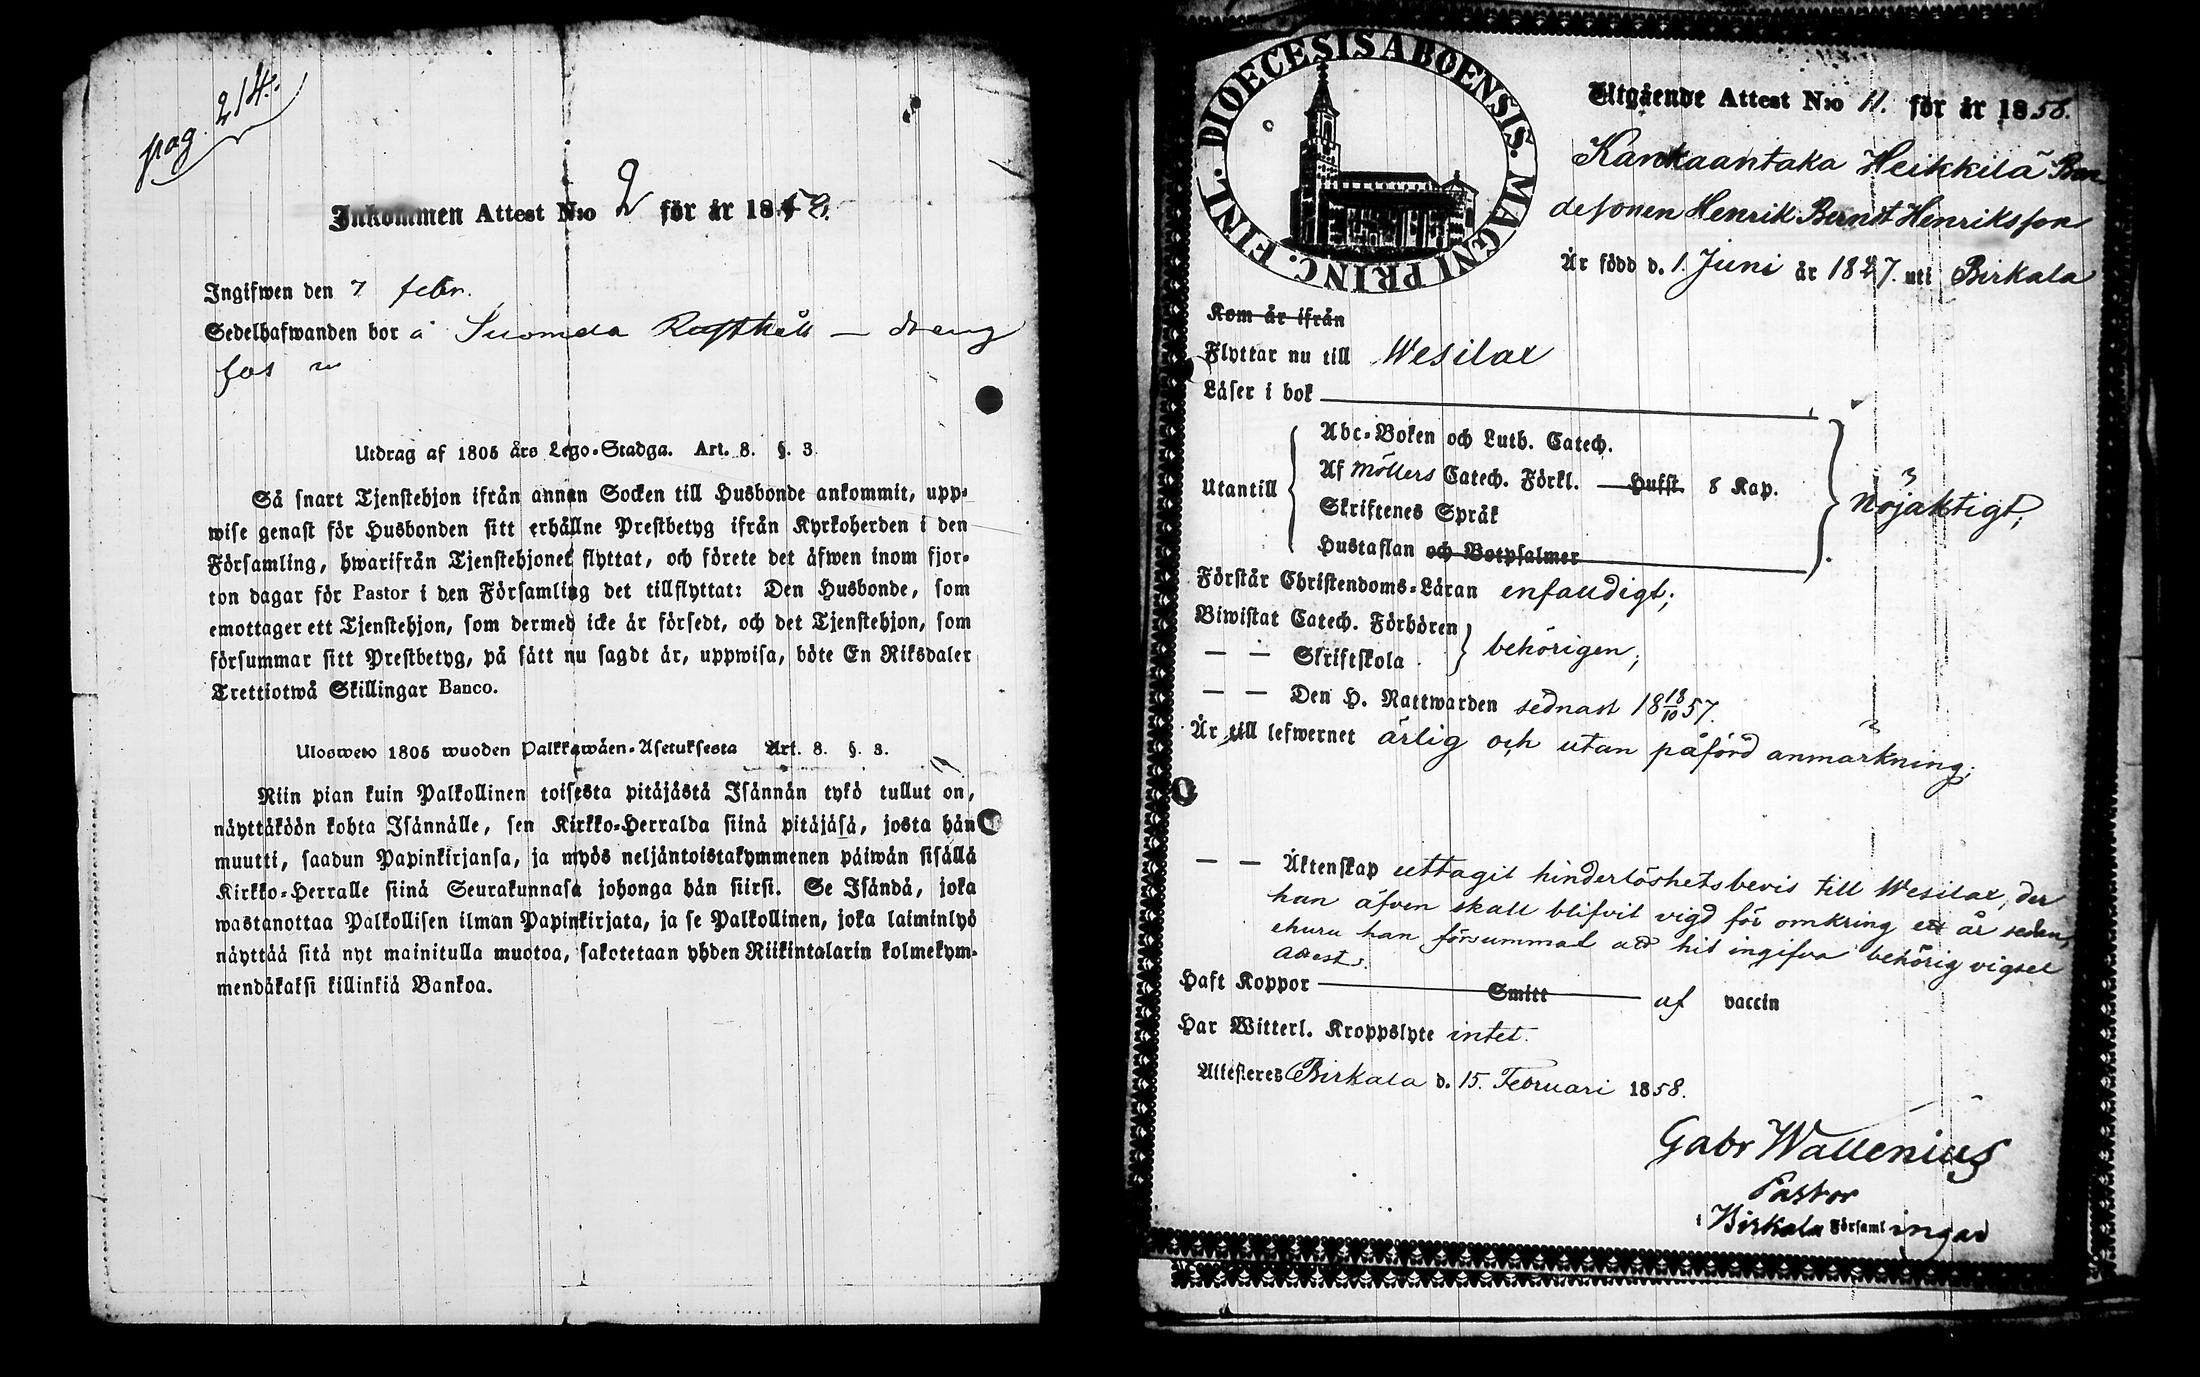 pag. 214.
Inkommen Attest N:o 2 för år 1859.
Ingifwen den 7 febr.
Sedelhafwanden bor å Suomela Rusthåll — dräng
Utdrag af 1805 års Lego-Stadga. Art. 8. §. 3.
Så snart Tjenstehjon ifrån annan Socken till Husbonde ankommit, upp-
wise genast för Husbonden sitt erhållne Prestbetyg ifrån Kyrkoherden i den
Församling, hwarifrån Tjenstehjonet flyttat, och förete det äfwen inom fjor-
ton dagar för Pastor i den Församling det tillflyttat: Den Husbonde, som
emottager ett Tjenstehjon, som dermed icke är försedt, och det Tjenstehjon, som
försummar sitt Prestbetyg, på sätt nu sagdt är, uppwisa, böte En Riksdaler
Trettiotwå Skillingar Banco.
Ulosweto 1805 wuoden Palkkawäen-Asetuksesta Art. 8. §. 3.
Niin pian kuin Palkollinen toisesta pitäjästä Isännän tykö tullut on,
näyttäköön kohta Isännälle, sen Kirkko-Herralda siinä pitäjäsä, josta hän
muutti, saadun Papinkirjansa, ja myös neljäntoistakymmenen päiwän sisällä
Kirkko-Herralle siinä Seurakunnasa johonga hän siirsi. Se Isändä, joka
wastanottaa Palkollisen ilman Papinkirjata, ja se Palkollinen, joka laiminlyö
näyttää sitä nyt mainitulla muotoa, sakotetaan yhden Riikintalarin kolmekym-
mendäkaksi killinkiä Bankoa.
DIOECESIS ABOENSIS. MAGNI PRINC. FINL.
Utgående Attest N:o 11. för år 1858.
Kankaantaka Heikkilä Bon
desonen Henrik Bernt Henriksson
Är född d. 1. Juni år 1827. uti Birkala
Kom år ifrån
Flyttar nu till Wesilax
Läser i bok
Utantill
Abc-Boken och Luth. Catech.
Af Möllers Catech. Förkl. Hufst. 8 Kap.
Skriftenes Språk
Hustaflan och Botpsalmer
nöjaktigt;
Förstår Christendoms-Läran enfaldigt;
Biwistat Catech. Förhören
— — Skriftskola
behörigen;
— — Den H. Nattwarden sednast 18 18/10 57.
Är till lefwernet ärlig och utan påförd anmärkning;
— — Äktenskap uttagit hinderlöshetsbevis till Wesilax, der
han äfven skall blifvit vigd för omkring ett år sedan,
ehuru han försummat att hit ingifva behörig vigsel
attest.
Haft Koppor Smitt af vaccin
Har Witterl. Kroppslyte intet.
Attesteres Birkala d. 15. Februari 1858.
Gabr Wallenius
Pastor
i Birkala Församlingar